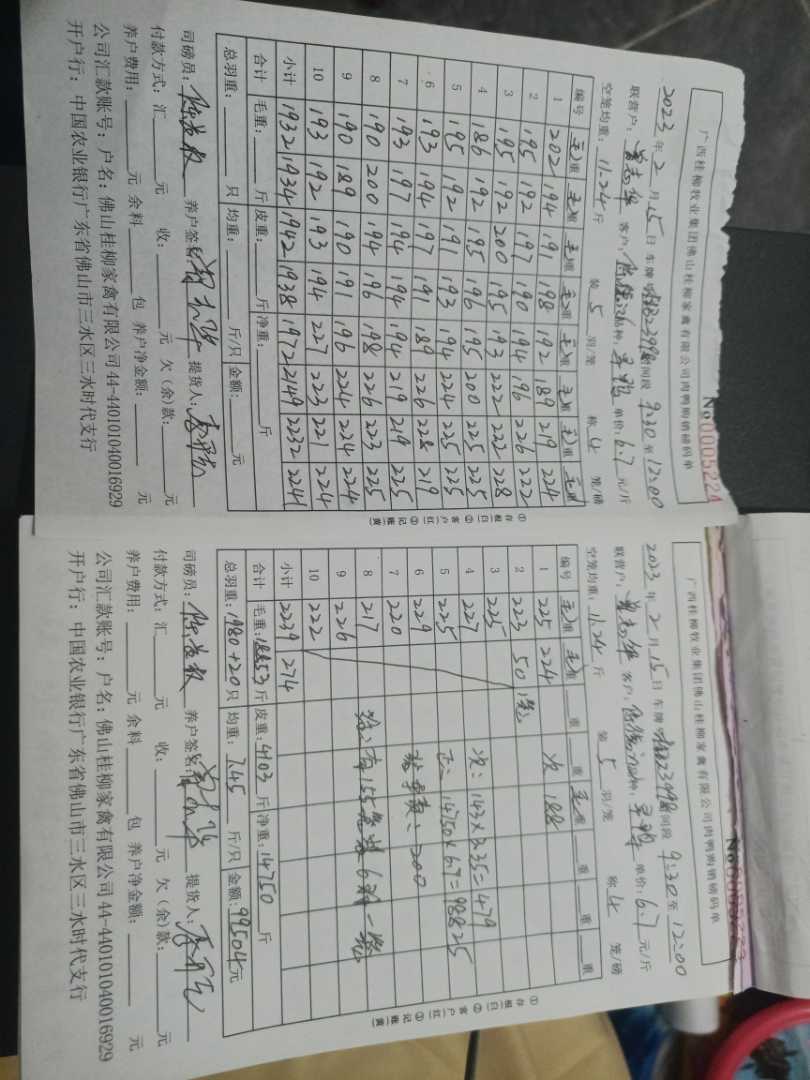 广西桂柳牧业集团佛山桂柳家禽有限公司肉鸭购销磅码单
No 0005224
2023年2月15日 车牌: 时间段 9:30至12:00
联营户: 客户: 品种: 单价:6.7元/斤
空笼均重:11.24斤 装5羽/笼 称4笼/磅
编号 毛重 毛重 毛重 毛重 毛重 毛重 毛重 毛重
1 202 194 191 198 192 189 219 224
2 195 192 197 190 194 196 226 222
3 195 192 200 195 193 222 222 228
4 186 192 195 196 195 200 225 225
5 195 192 191 193 194 224 225 225
6 193 194 197 191 189 226 228 219
7 193 197 194 194 194 219 219 225
8 190 200 194 196 198 226 223 225
9 190 189 190 191 196 224 224 224
10 193 192 193 194 227 223 221 224
小计 1932 1934 1942 1938 1972 2149 2232 2241
合计 毛重: 斤 皮重: 斤 净重: 斤
总羽重: 只 均重: 斤/只 金额: 元
司磅员: 养户签名: 提货人:
付款方式:汇 元 收: 元 欠(余)款: 元
养户费用: 元 余料 包 养户净金额: 元
公司汇款账号:户名:佛山桂柳家禽有限公司 44-440101040016929
开户行:中国农业银行广东省佛山市三水区三水时代支行
①存根(白)②客户(红)③记账(黄)
广西桂柳牧业集团佛山桂柳家禽有限公司肉鸭购销磅码单
2023年2月15日 车牌: 时间段 9:30至12:00
联营户: 客户: 品种: 单价:6.7元/斤
空笼均重:11.24斤 装5羽/笼 称4笼/磅
编号 毛重 毛重 重 重 毛重 重 重 重
1 225 224 次 188
2 223 50 1笼
3 225
4 227 次:143×3.35=479
5 225 正:14750×6.7=98825
6 229 200
7 220
8 217
9 226
10 222
小计 2239 274
合计 毛重:18853斤 皮重:4103斤 净重:14750斤
总羽重:1980+20只 均重:7.45斤/只 金额:99504元
司磅员: 养户签名: 提货人:
付款方式:汇 元 收: 元 欠(余)款: 元
养户费用: 元 余料 包 养户净金额: 元
公司汇款账号:户名:佛山桂柳家禽有限公司 44-440101040016929
开户行:中国农业银行广东省佛山市三水区三水时代支行
①存根(白)②客户(红)③记账(黄)